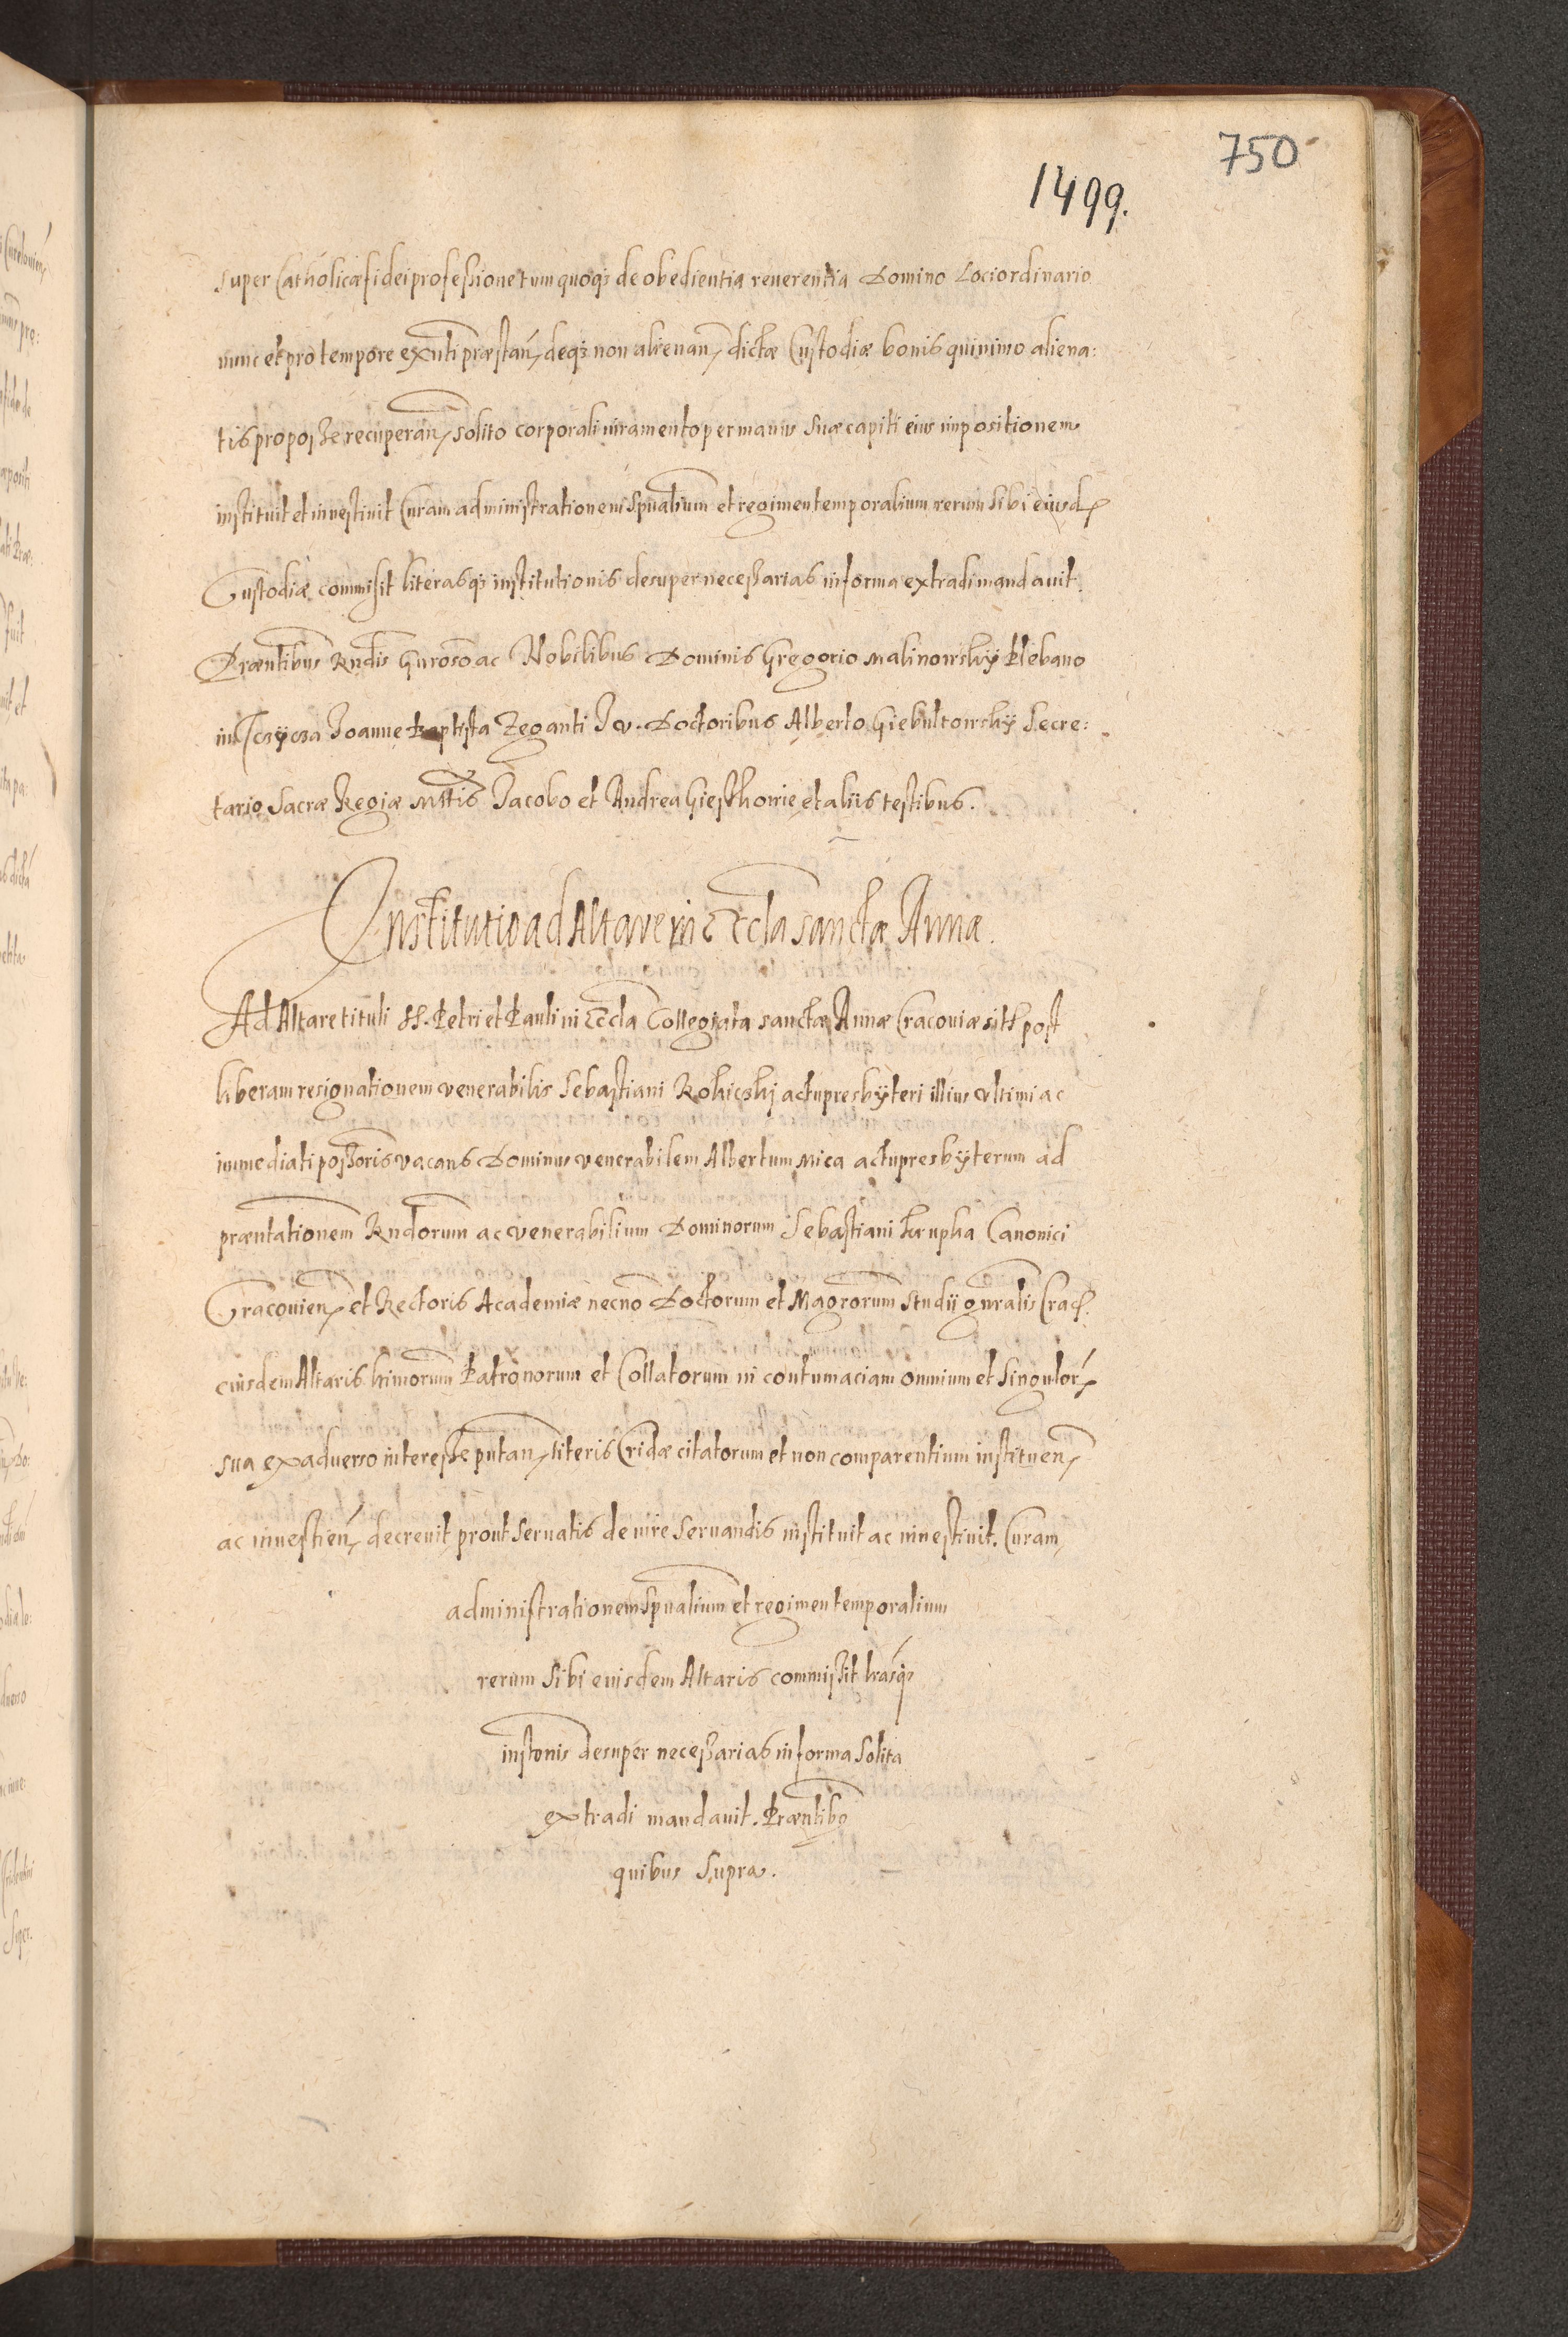 750
1499.
super Catholicæ fidei professione tum quoq3 de obedientia reuerentia Domino Loci ordinario
nunc et pro tempore exnti præstan, deq3 non alienan, dictæ Custodiæ bonis quinimo aliena:
tis pro posse recuperan, solito corporali iuramento per manus suæ capiti eius impositionem
instituit et inuestiuit Curam administrationem spualium et regimen temporalium rerum sibi eiusd
Custodiæ commisit literasq3 institutionis desuper necessarias in forma extradi mandauit.
Præntibus Rndis Gnroso ac Nobilibus Dominis Gregorio Malinowskÿ Plebano
in Joanne Baptista Zeganti J v. Doctoribus Alberto Giebultowskÿ Secre:
tario Sacræ Regiæ Mttis Jacobo et Andrea et aliis testibus.
Institutio ad Altare in Eccla sanctæ Annæ.
Ad Altare tituli SS. Petri et Pauli in Eccla Collegiata sanctæ Annæ Cracouiæ sit post
liberam resignationem venerabilis Sebastiani Rokickj actu presbÿteri illius vltimi ac
immediati possoris vacans Dominus venerabilem Albertum Mica actu presbÿterum ad
præntationem Rndorum ac venerabilium Dominorum Sebastiani Krupka Canonici
Cracouien, et Rectoris Academiæ necno Doctorum et Magrorum studii gnralis Crac.
eiusdem Altaris Patronorum et Collatorum in contumaciam omnium et singulor
sua ex aduerso interesse putan, literis Cridæ citatorum et non comparentium instituen,
ac inuestien, decreuit prout seruatis de iure seruandis instituit ac inuestiuit. Curam
administrationem spualium et regimen temporalium
rerum sibi eiusdem Altaris commissit lrasq3
instonis desuper necessarias in forma solita
extradi mandauit. Præntibo
quibus supra.